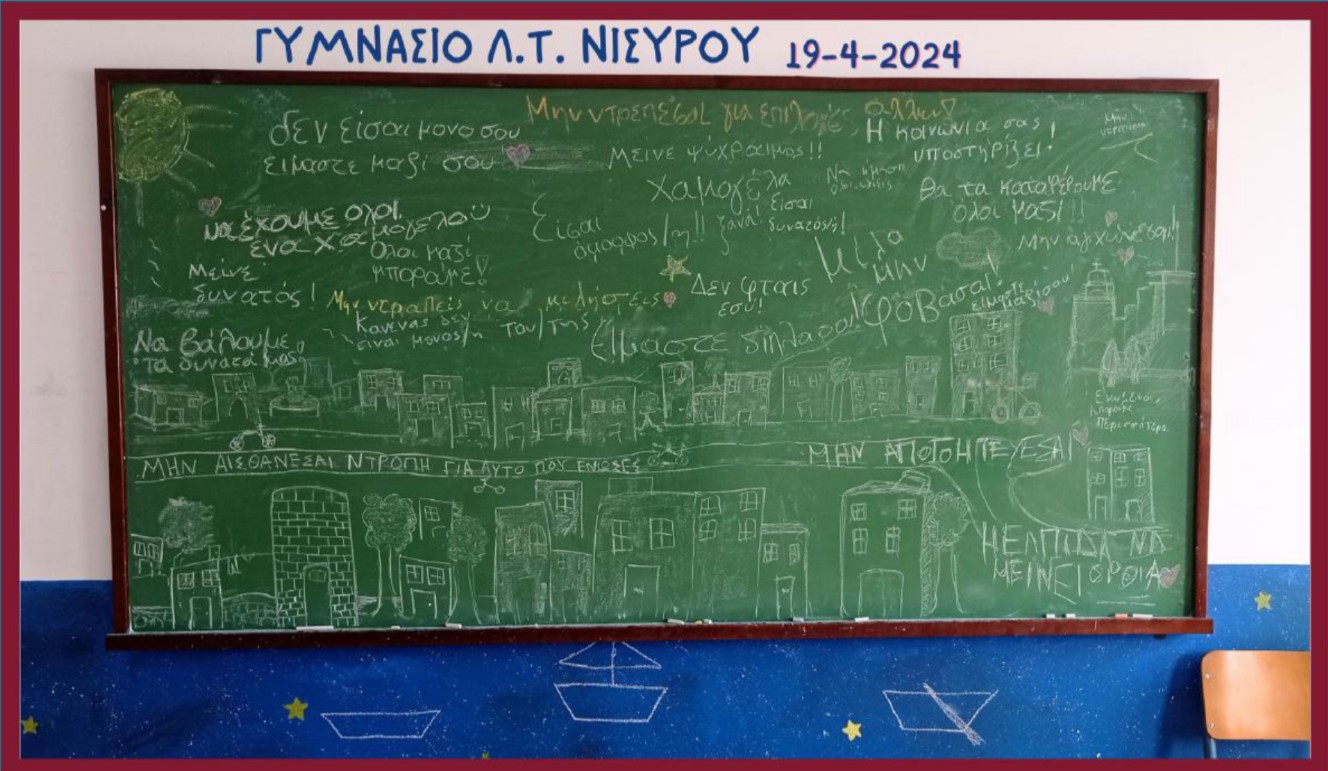 ΓΥΜΝΑΣΙΟ Λ.Τ. ΝΙΣΥΡΟΥ 19-4-2024
Μην ντρεπεσαι για επιλογές άλλων!
δεν είσαι μονο σου
ειμαστε μαζί σου
Μεινε ψύχραιμος!!
Η κοινωνία σας
υποστηρίζει!
Χαμογέλα
ξανά!
Είσαι
δυνατός/ή!
Θα τα καταφέρουμε
όλοι μαζί!!
να έχουμε όλοι
ένα χαμόγελο
Ολοι μαζί
μπορούμε!
Είσαι
όμορφος/η!!
Μην αγχώνεσαι!!
Μείνε
δυνατός!
Μίλα
μην
φοβάσαι!
Δεν φταις
εσύ!
είμαστε
μαζί σου!
Μην ντραπείς να μιλήσεις
Κανενας δεν
ειναι μονος/η του/της
Είμαστε δίπλα σου!
Να βάλουμε
τα δυνατά μας
Ενωμένοι
μπορούμε
περισσότερα
ΜΗΝ ΑΙΣΘΑΝΕΣΑΙ ΝΤΡΟΠΗ ΓΙΑ ΑΥΤΟ ΠΟΥ ΕΝΙΩΣΕΣ
ΜΗΝ ΑΠΟΓΟΗΤΕΥΕΣΑΙ
Η ΕΛΠΙΔΑ ΝΑ
ΜΕΙΝΕΙ ΟΡΘΙΑ